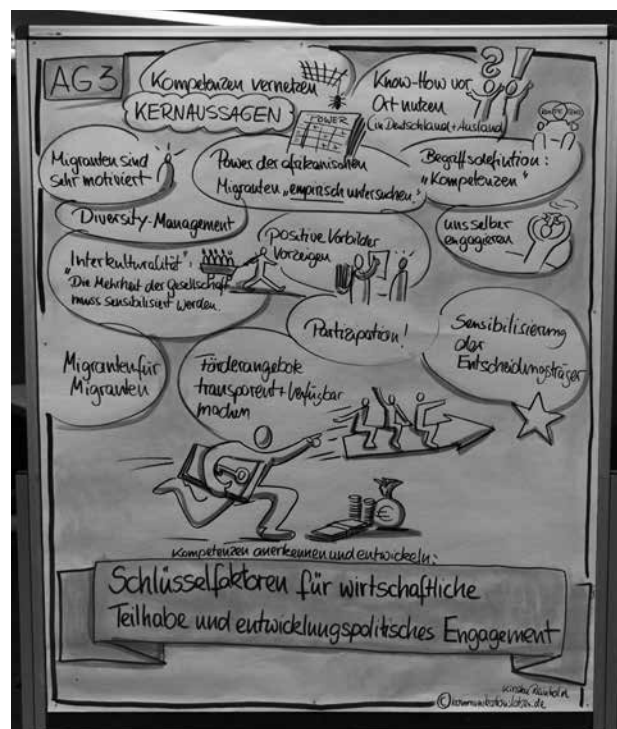 AG3
Kompetenzen vernetzen
KERNAUSSAGEN
Know-How vor
Ort nutzen
(in Deutschland + Ausland)
POWER
Migranten sind
sehr motiviert
Power der afrikanischen
Migranten „empirisch untersuchen."
Begriffsdefinition:
"Kompetenzen"
Diversity-Management
uns selber
engagieren
positive Vorbilder
vorzeigen
"Interkulturalität":
"Die Mehrheit der Gesellschaft
muss sensibilisiert werden.
Partizipation!
Sensibilisierung
der
Entscheidungsträger
Migranten für
Migranten
Förderangebote
transparent + verfügbar
machen
€
Kompetenzen anerkennen und entwickeln:
Schlüsselfaktoren für wirtschaftliche
Teilhabe und entwicklungspolitisches Engagement
©kommunikationslotsen.de